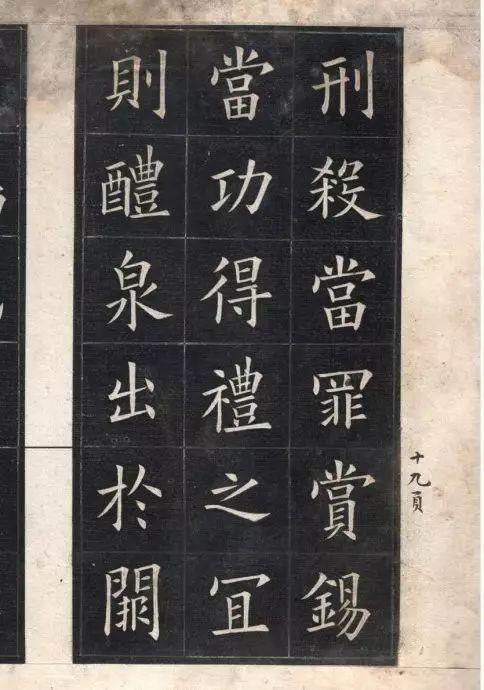 刑殺當罪賞錫
當功得禮之冝
則醴泉出於闕
十九頁